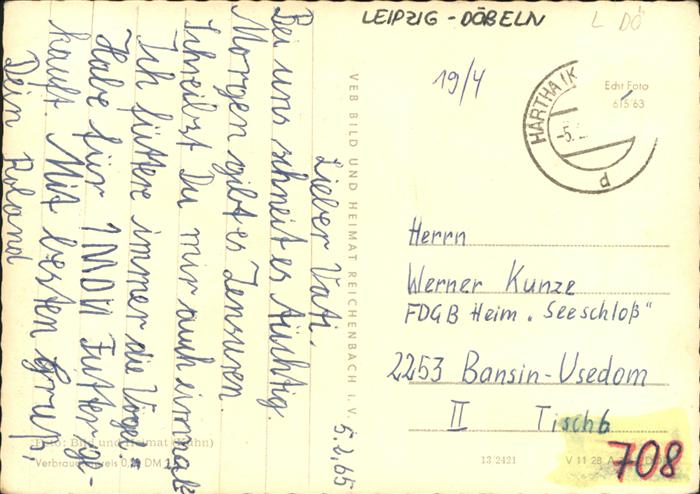 LEIPZIG - DÖBELN
L DÖ
19/4
Echt Foto
6/5/63
HARTHA (K
-5.
d
5.2.65
Lieber Vati,
Bei uns schneit es tüchtig.
Morgen gibt es Zensuren
Schreibst Du mir auch einmal?
Ich füttere immer die Vögel.
Habe für 1 MDN Futter ge-
kauft. Mit besten Gruß,
Dein Roland
VEB BILD UND HEIMAT REICHENBACH I. V.
Herrn
Werner Kunze
FDGB Heim „Seeschloß"
2253 Bansin-Usedom
II Tisch 6
708
Foto: Bild und Heimat
Verbraucherpreis DM
13/2421
V 11 28